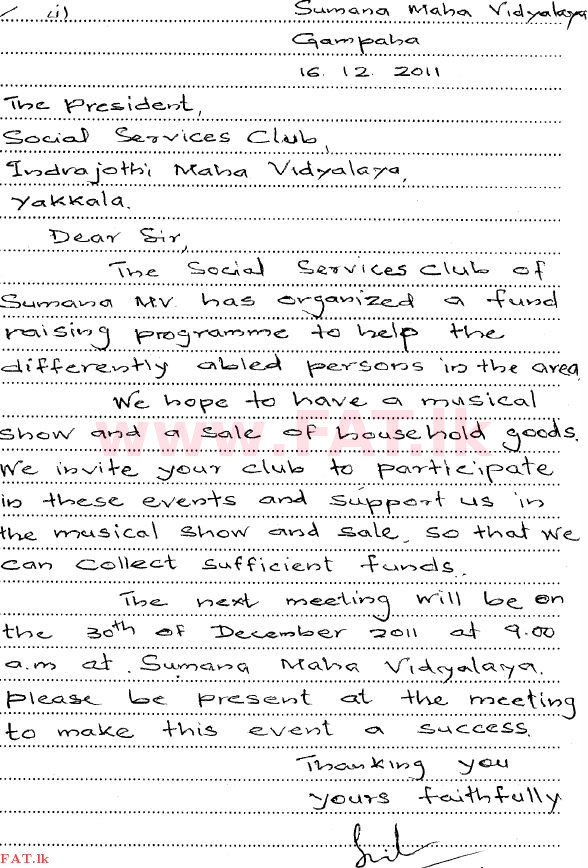 (i) Sumana Maha Vidyalaya
Gampaha
16. 12. 2011
The President,
Social Services Club,
Indrajothi Maha Vidyalaya,
Yakkala.
Dear Sir,
The Social Services Club of
Sumana MV. has organized a fund
raising programme to help the
differently abled persons in the area.
We hope to have a musical
show and a sale of household goods.
We invite your club to participate
in these events and support us in
the musical show and sale, so that we
can collect sufficient funds.
The next meeting will be on
the 30th of December 2011 at 9.00
a.m at Sumana Maha Vidyalaya.
please be present at the meeting
to make this event a success.
Thanking you
yours faithfully
www.FAT.lk
FAT.lk